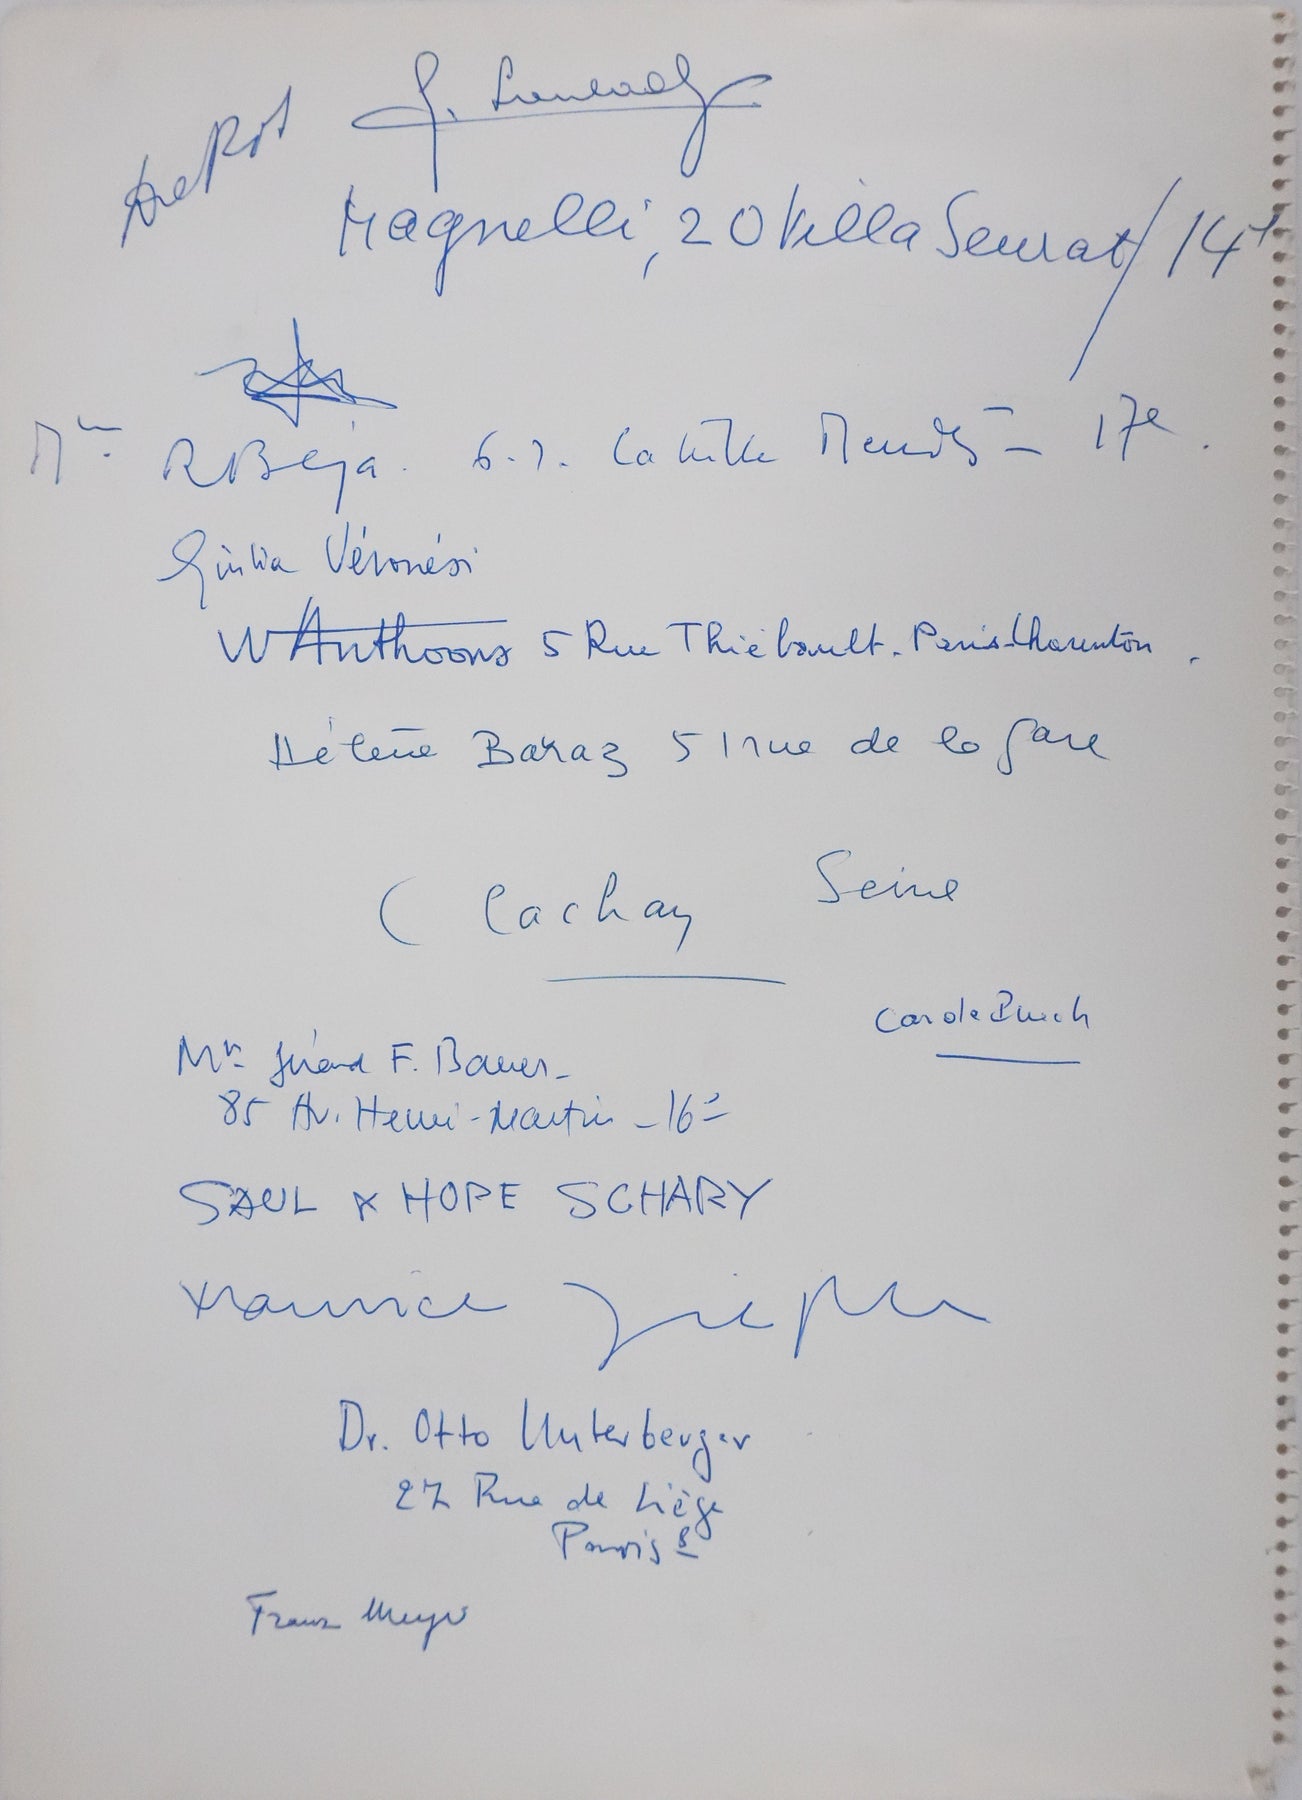 Magnelli, 20 Villa Seurat / 14
R Beja. 6.7. Catulle Mendès - 17e.
Giulia Véronési
W Anthoons 5 Rue Thiébault. Paris-Charenton.
Hélène Baraz 51 rue de la gare
( Cachan Seine
Mr F. Bauer-
85 Av. Henri-Martin - 16e
SAUL & HOPE SCHARY
Maurice
Dr. Otto Unterberger
27 Rue de Liège
Paris 8
Franz Meyer